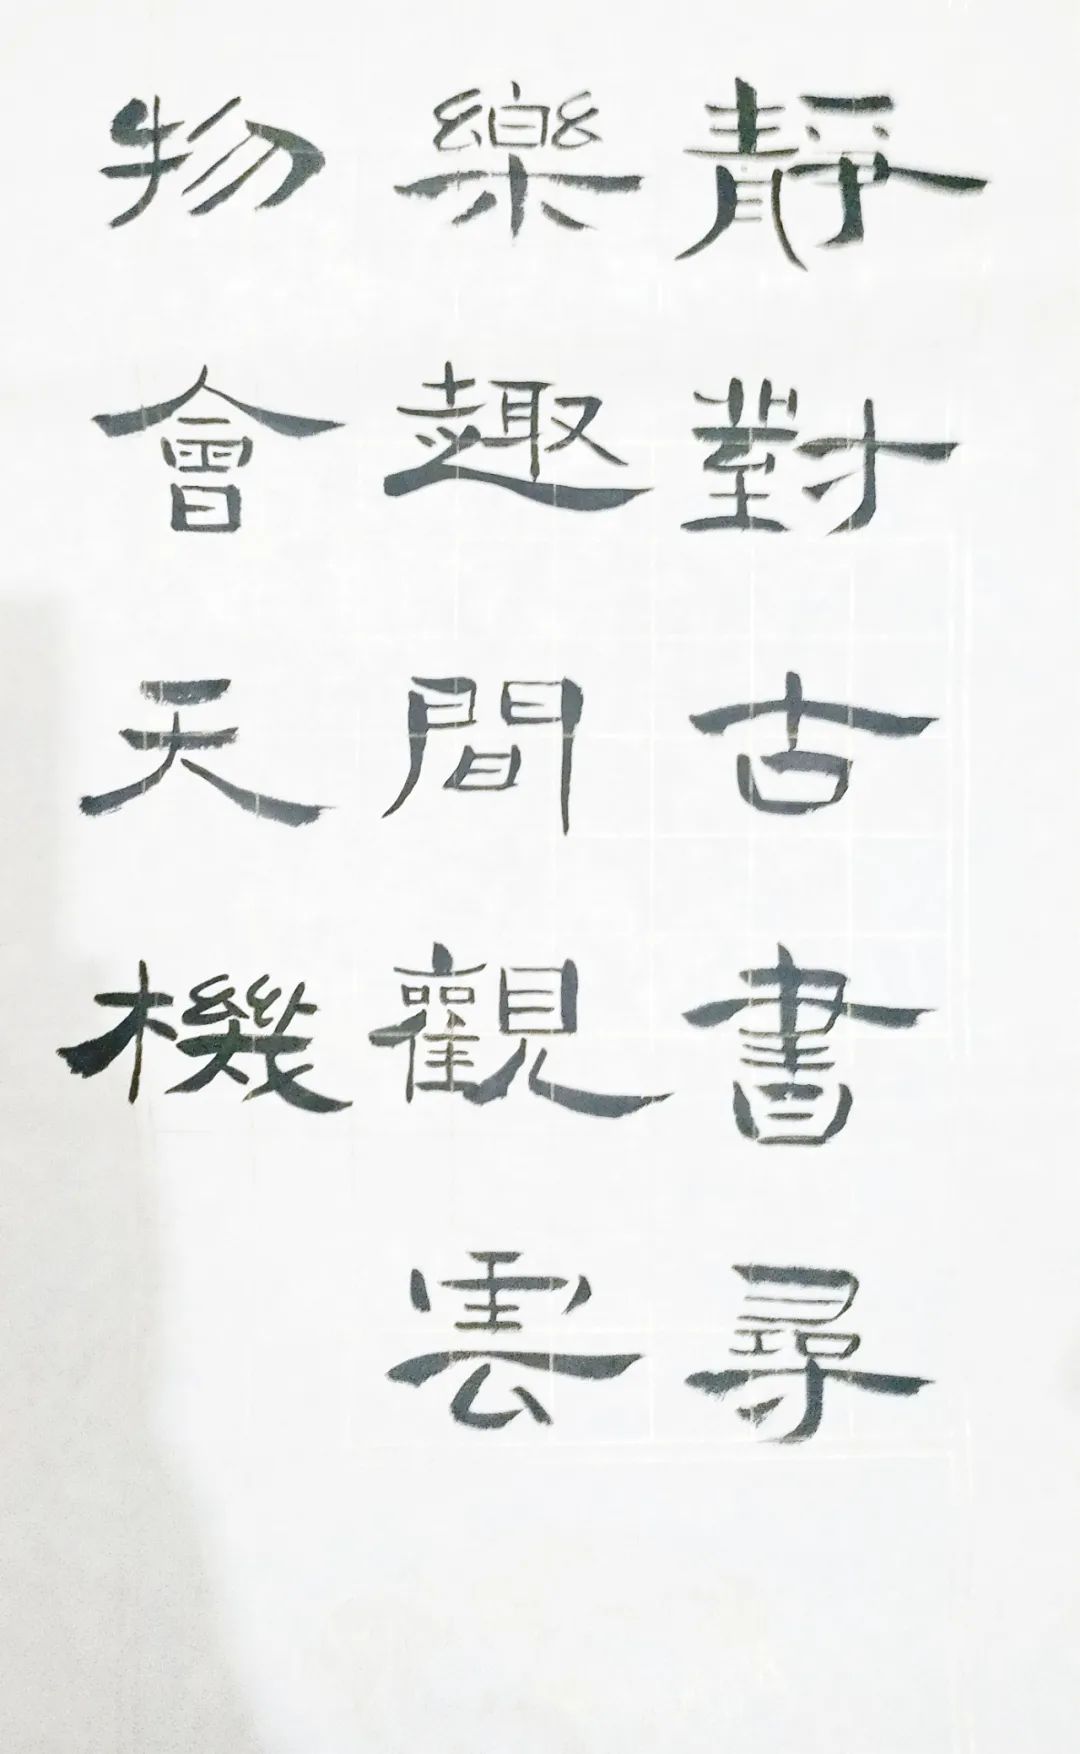 靜對古書尋
樂趣間觀雲
物會天機